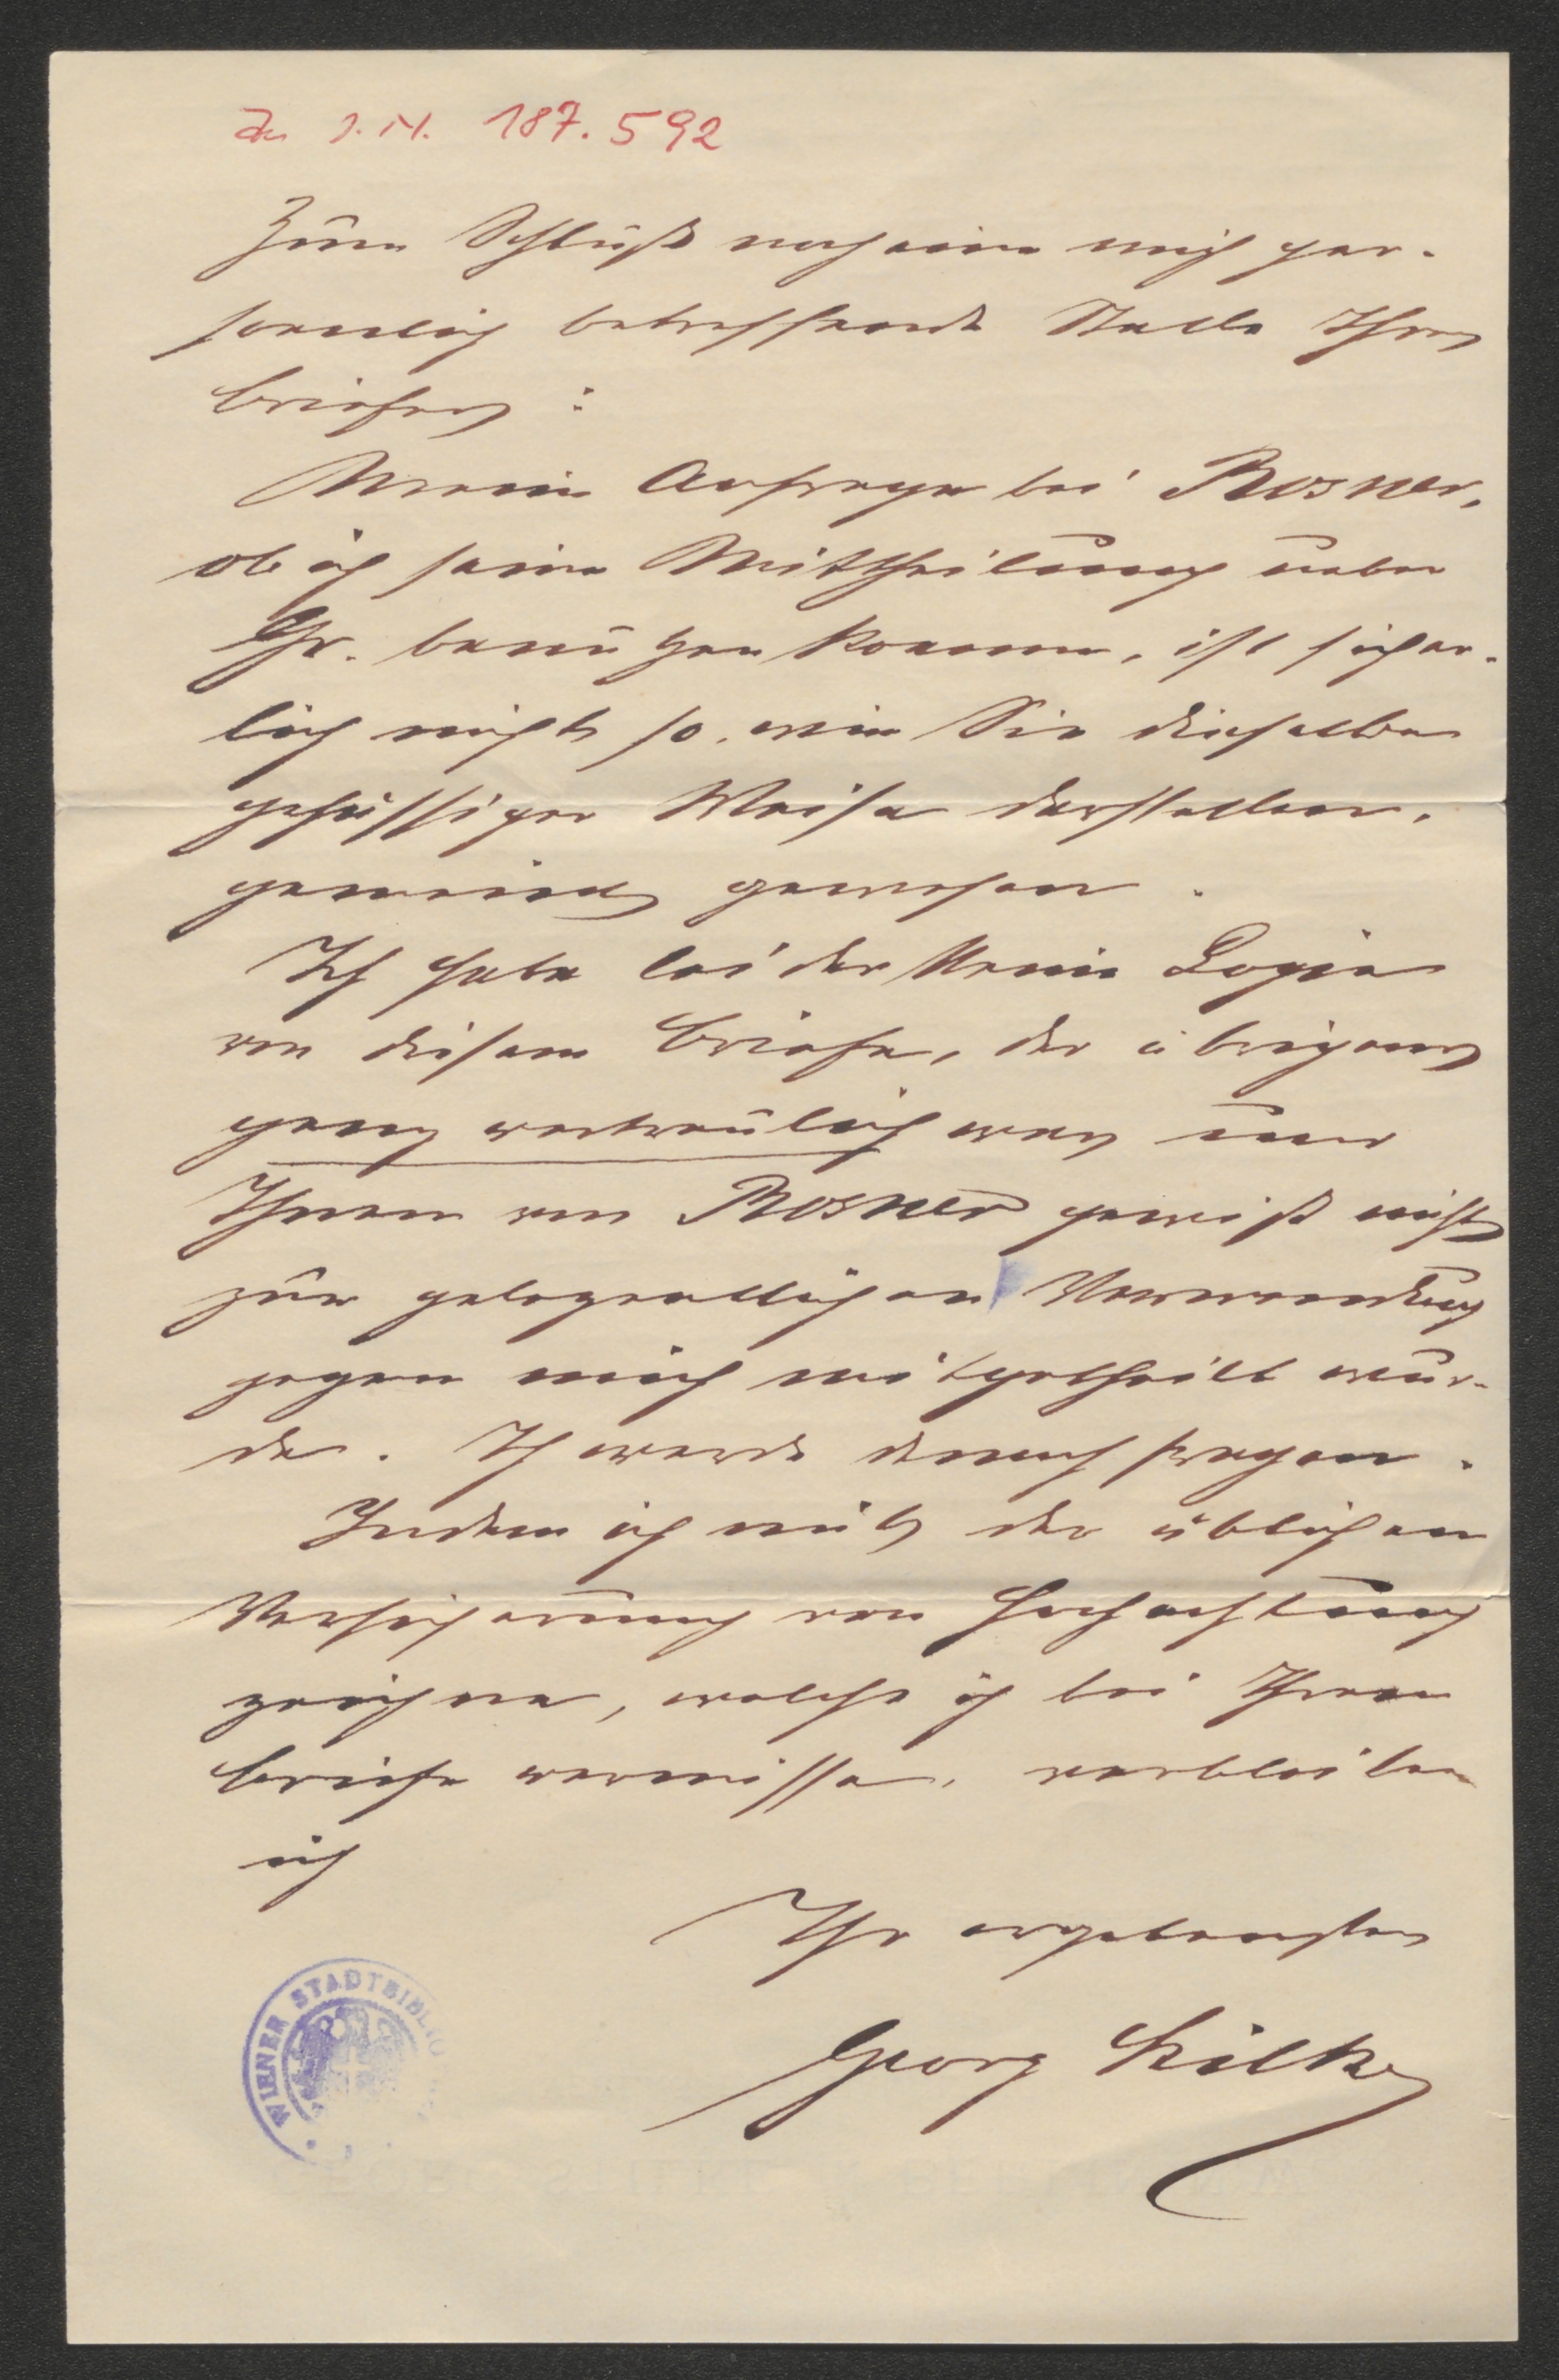 Zu J.N. 187.592
Zum Schluß noch eine mich per-
soenlich betreffende Stelle Ihres
Briefes:
Meine Anfrage bei Rosner,
ob ich seine Mittheilung ueber
Gr. benützen koenne, ist sicher-
lich nicht so, wie Sie dieselbe
gehässiger Weise darstellen,
gemeint gewesen.
Ich habe leider keine Copie
von diesem Briefe, der übrigens
ganz vertraulich war und
Ihnen von Rosner gewiß nicht
zur gelegentlichen Verwendung
gegen mich mitgetheilt wur-
de. Ich werde darnach fragen.
Indem ich mit der üblichen
Versicherung von Hochachtung
zeichne, welche ich bei Ihrem
Briefe vermisse, verbleibe
ich
Ihr ergebenster
Georg
WIENER STADTBIBLIO